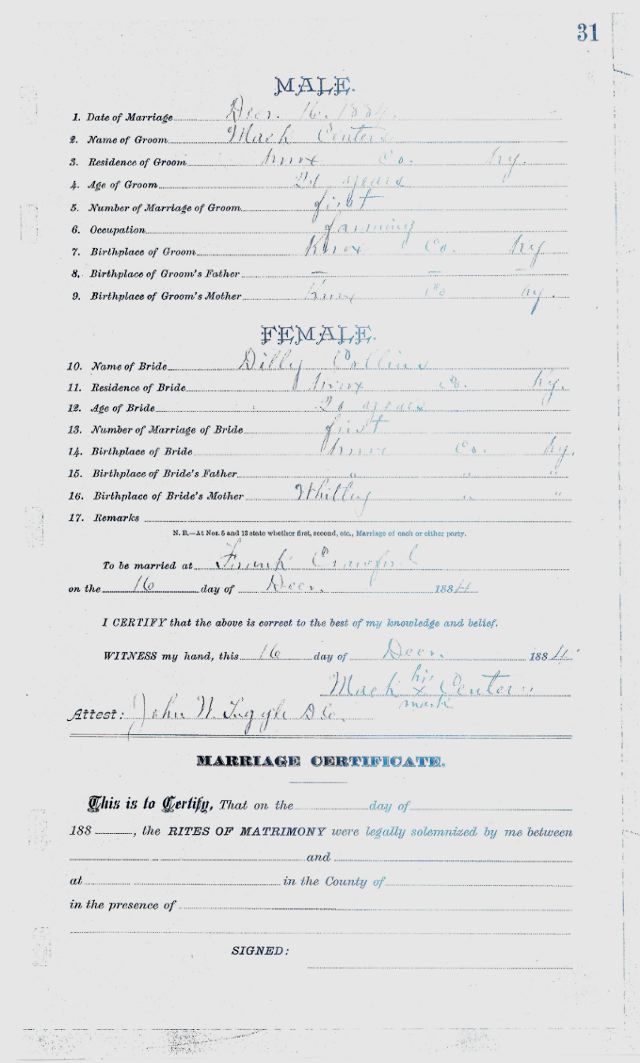 31
MALE.
1. Date of Marriage Decr. 16. 1884.
2. Name of Groom Mack Centers
3. Residence of Groom Knox Co. Ky.
4. Age of Groom years
5. Number of Marriage of Groom first
6. Occupation farming
7. Birthplace of Groom Knox Co. Ky
8. Birthplace of Groom's Father — — —
9. Birthplace of Groom's Mother Knox Co Ky.
FEMALE.
10. Name of Bride Dilly Collins
11. Residence of Bride Knox Co. Ky.
12. Age of Bride 20 years
13. Number of Marriage of Bride first
14. Birthplace of Bride Knox Co. Ky.
15. Birthplace of Bride's Father " " "
16. Birthplace of Bride's Mother Whitley " "
17. Remarks
N. B.—At Nos. 5 and 13 state whether first, second, etc., Marriage of each or either party.
To be married at Frank Crawford
on the 16 day of Decr. 1884
I CERTIFY that the above is correct to the best of my knowledge and belief.
WITNESS my hand, this 16 day of Decr. 1884
his
Mack x Centers
mark
Attest: John W. Tuggle D.C.
MARRIAGE CERTIFICATE.
This is to Certify, That on the day of
188 , the RITES OF MATRIMONY were legally solemnized by me between
and
at in the County of
in the presence of
SIGNED: